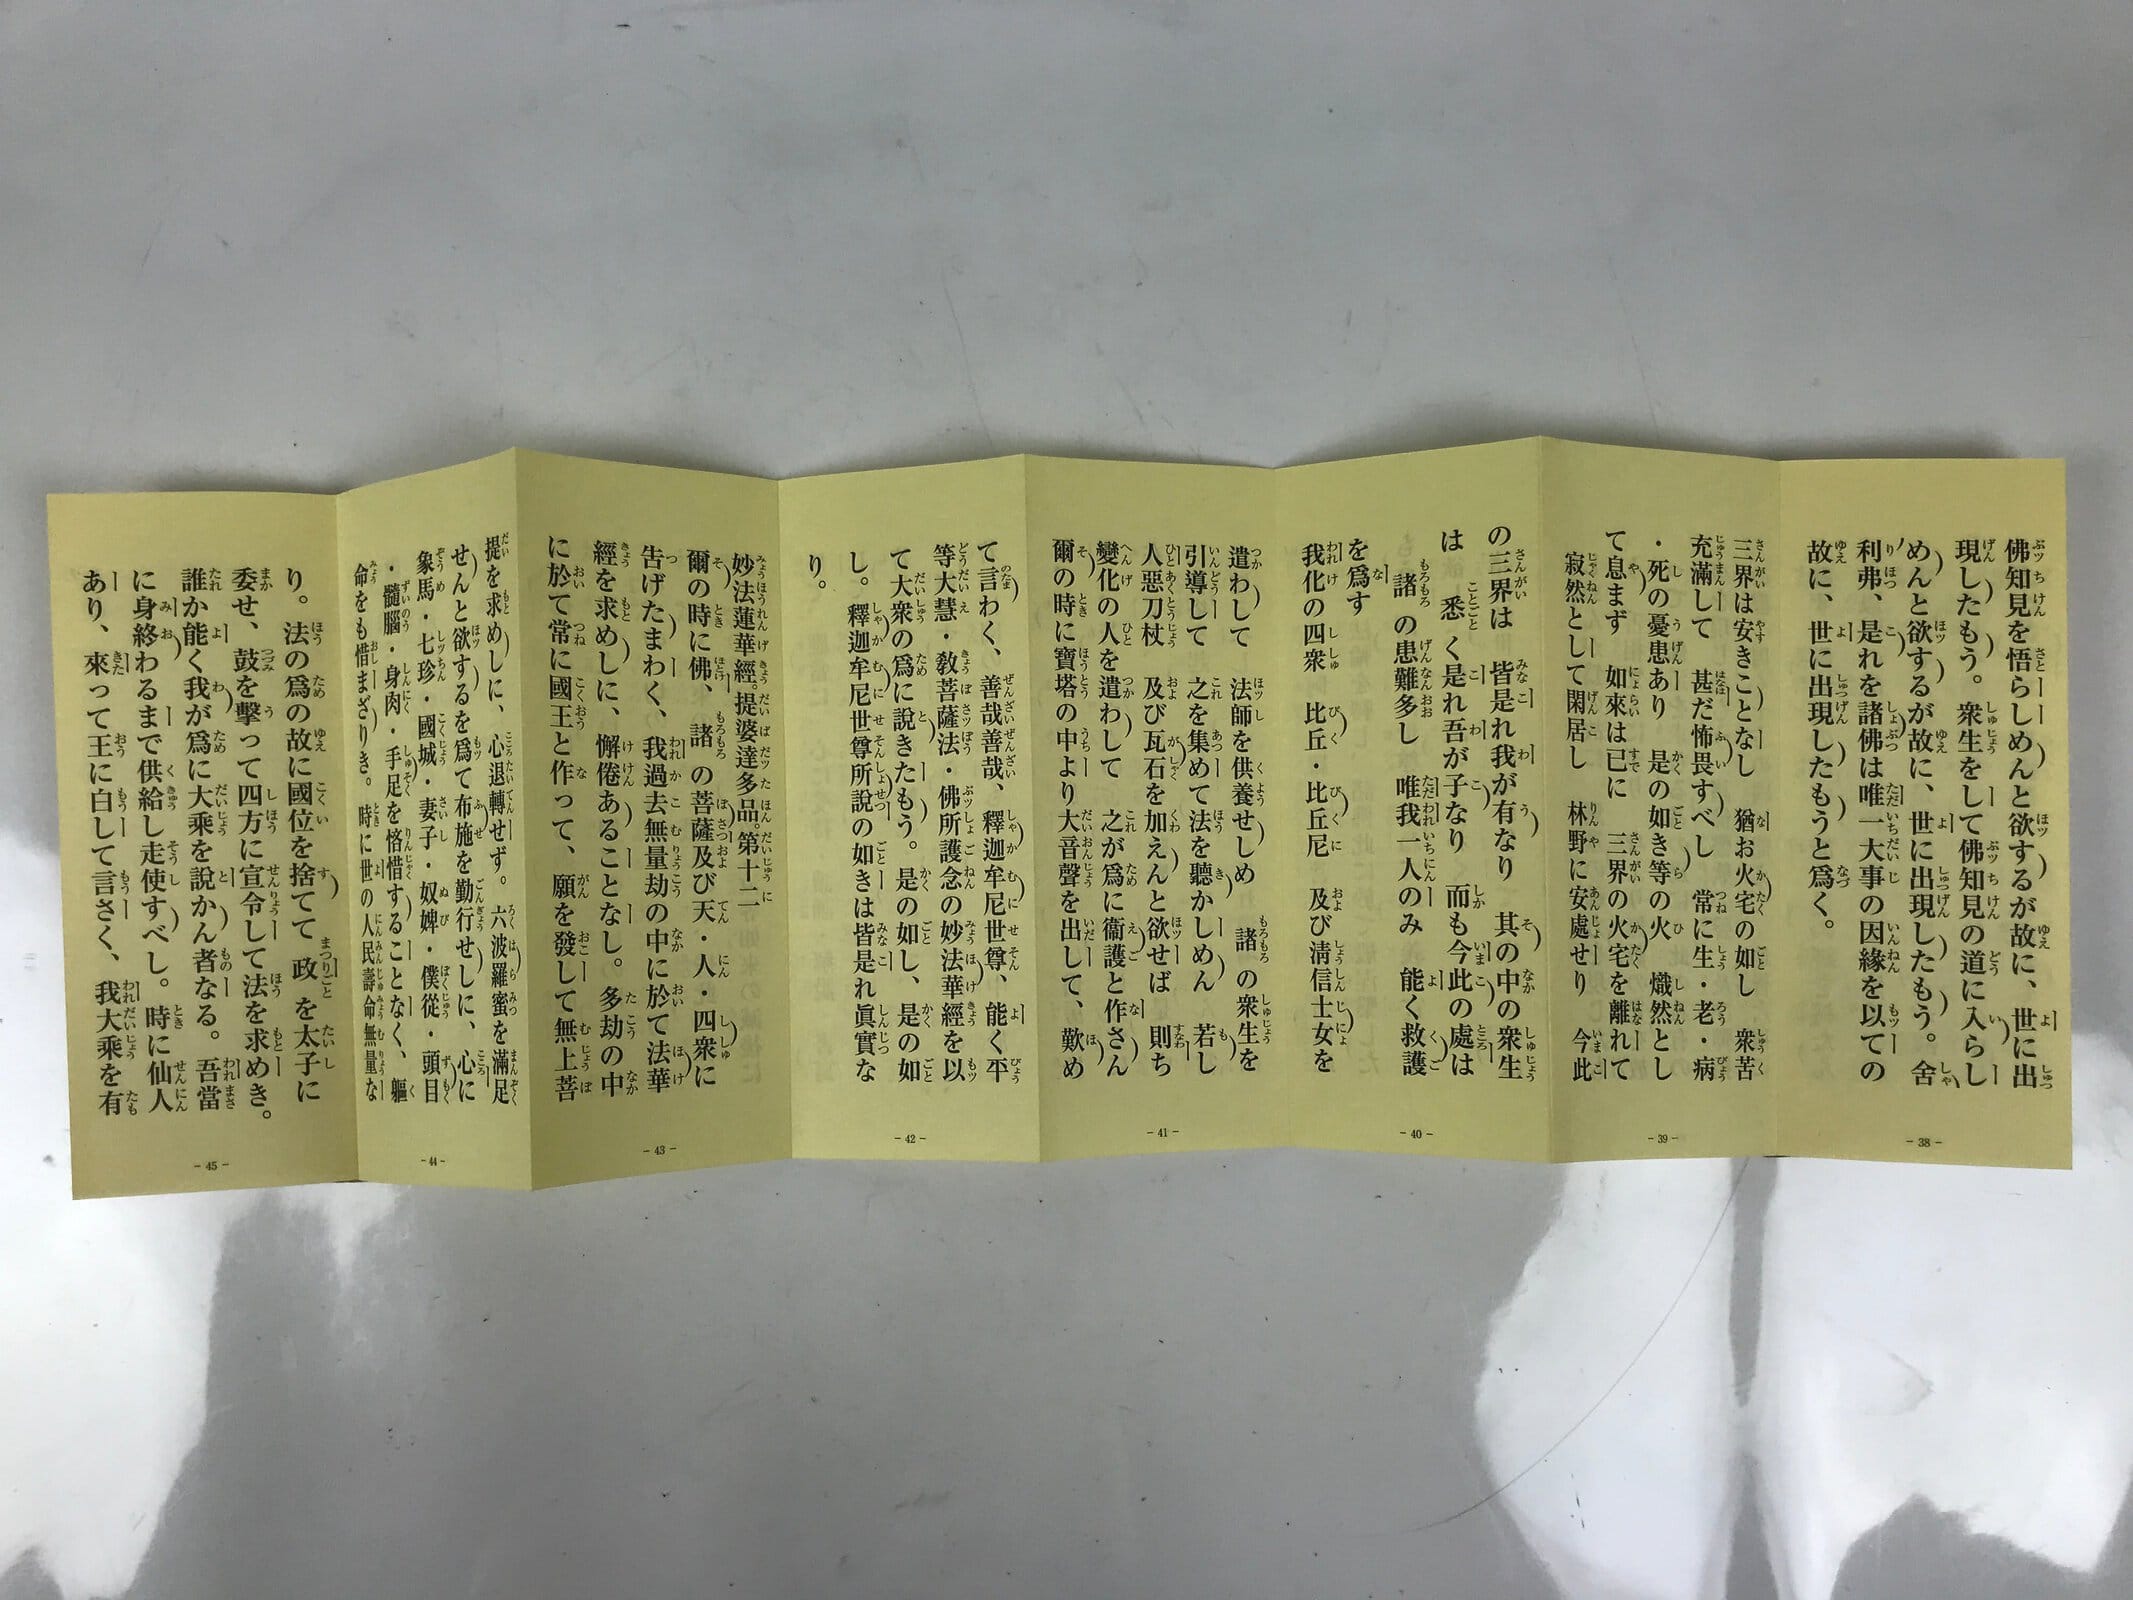 佛知見を悟らしめんと欲するが故に、世に出
現したもう。衆生をして佛知見の道に入らし
めんと欲するが故に、世に出現したもう。舍
利弗、是れを諸佛は唯一大事の因緣を以ての
故に、世に出現したもうと爲く。
- 38 -
三界は安きことなし　猶お火宅の如し　衆苦
充滿して　甚だ怖畏すべし　常に生・老・病
・死の憂患あり　是の如き等の火　熾然とし
て息まず　如來は已に　三界の火宅を離れて
寂然として閑居し　林野に安處せり　今此
- 39 -
の三界は　皆是れ我が有なり　其の中の衆生
は　悉く是れ吾が子なり　而も今此の處は
諸の患難多し　唯我一人のみ　能く救護
を爲す
我化の四衆　比丘・比丘尼　及び淸信士女を
- 40 -
遣わして　法師を供養せしめ　諸の衆生を
引導して　之を集めて法を聽かしめん　若し
人惡刀杖　及び瓦石を加えんと欲せば　則ち
變化の人を遣わして　之が爲に衞護と作さん
爾の時に寶塔の中より大音聲を出して、歎め
- 41 -
て言わく、善哉善哉、釋迦牟尼世尊、能く平
等大慧・敎菩薩法・佛所護念の妙法華經を以
て大衆の爲に說きたもう。是の如し、是の如
し。釋迦牟尼世尊所說の如きは皆是れ眞實な
り。
- 42 -
妙法蓮華經。提婆達多品。第十二
爾の時に佛、諸の菩薩及び天・人・四衆に
告げたまわく、我過去無量劫の中に於て法華
經を求めしに、懈倦あることなし。多劫の中
に於て常に國王と作って、願を發して無上菩
- 43 -
提を求めしに、心退轉せず。六波羅蜜を滿足
せんと欲するを爲て布施を勤行せしに、心に
象馬・七珍・國城・妻子・奴婢・僕從・頭目
・髓腦・身肉・手足を悋惜することなく、軀
命をも惜まざりき。時に世の人民壽命無量な
- 44 -
り。法の爲の故に國位を捨てて政を太子に
委せ、鼓を擊って四方に宣令して法を求めき。
誰か能く我が爲に大乘を說かん者なる。吾當
に身終わるまで供給し走使すべし。時に仙人
あり、來って王に白して言さく、我大乘を有
- 45 -